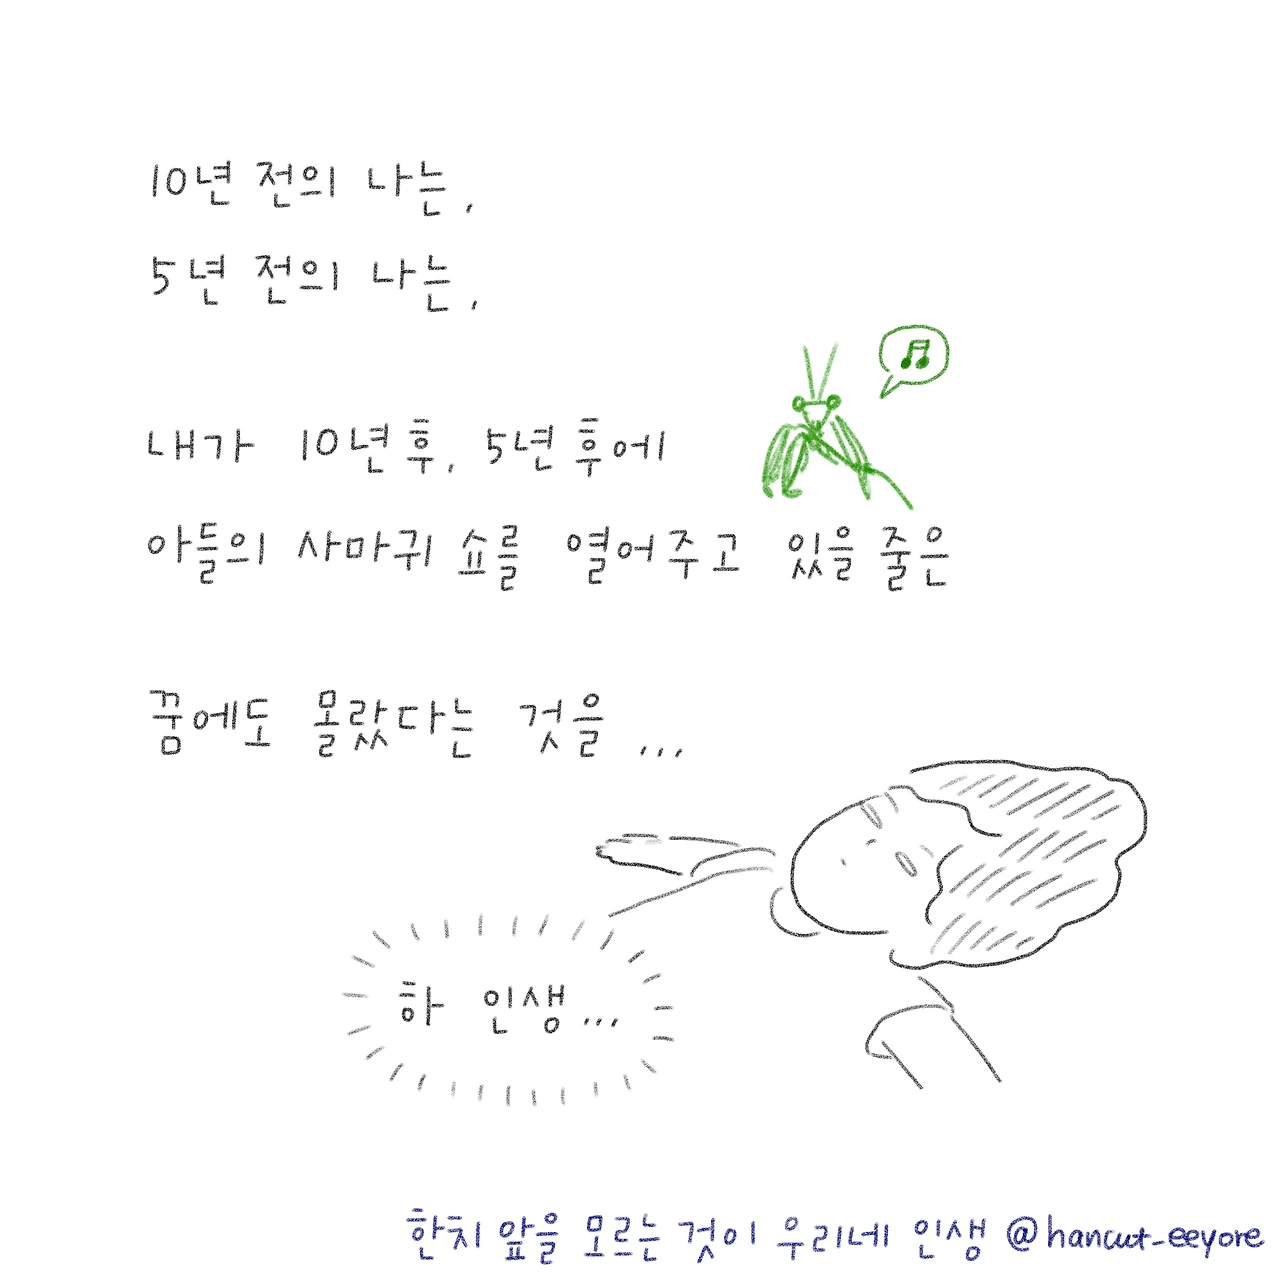 10년 전의 나는,
5년 전의 나는,
내가 10년 후, 5년 후에
아들의 사마귀 쇼를 열어주고 있을 줄은
꿈에도 몰랐다는 것을...
하 인생...
한치 앞을 모르는 것이 우리네 인생 @hancut_eeyore